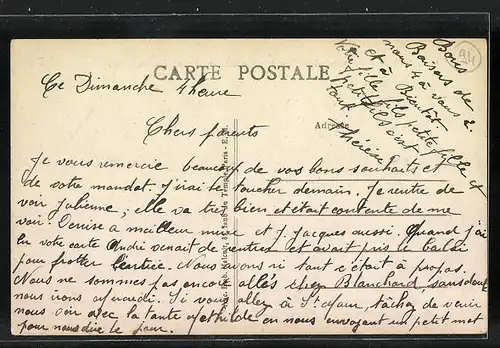 CARTE POSTALE
Ce Dimanche 4 heure
Adresse
Chers parents
Je vous remercie beaucoup de vos bons souhaits et
de votre mandat. J'irai le toucher demain. Je rentre de
voir Julienne, elle va très bien et était contente de me
voir. Denise a meilleur mine et J. Jacques aussi. Quand j'ai
lu votre carte André venait de rentrer et avait pris le balai
pour frotter. Nous avons ri tant c'était à propos.
Nous ne sommes pas encore allés chez Blanchard, sans doute
nous irons Si vous allez à St Maur, tâchez de venir
nous voir avec la tante Mathilde en nous envoyant un petit mot
pour nous dire le jour.
Bons
Baisers de
nous 4 à vous 2
et à Bientôt
Votre fille petite fille et
petit fils
Thérèse
94